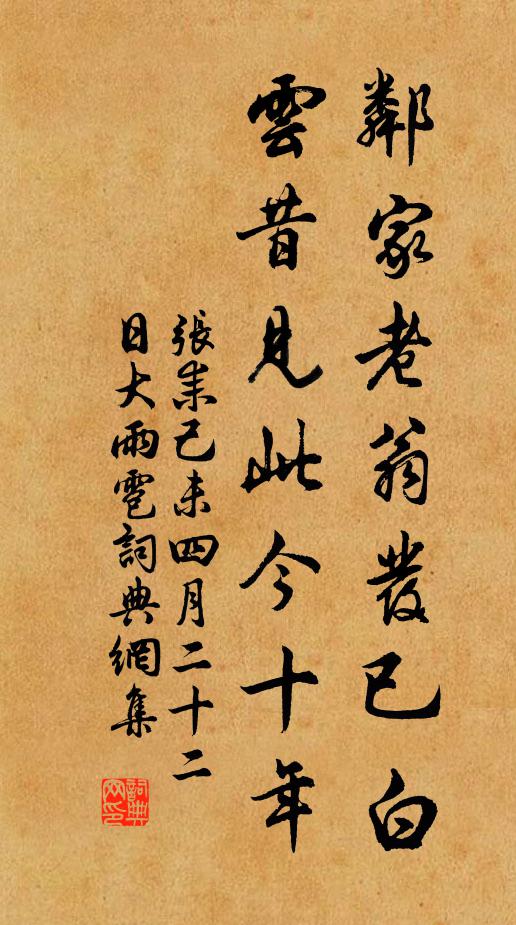 鄰家老翁發已白
雲昔見此今十年
張耒己未四月二十二
日大雨雹詞典網集
詞典網印